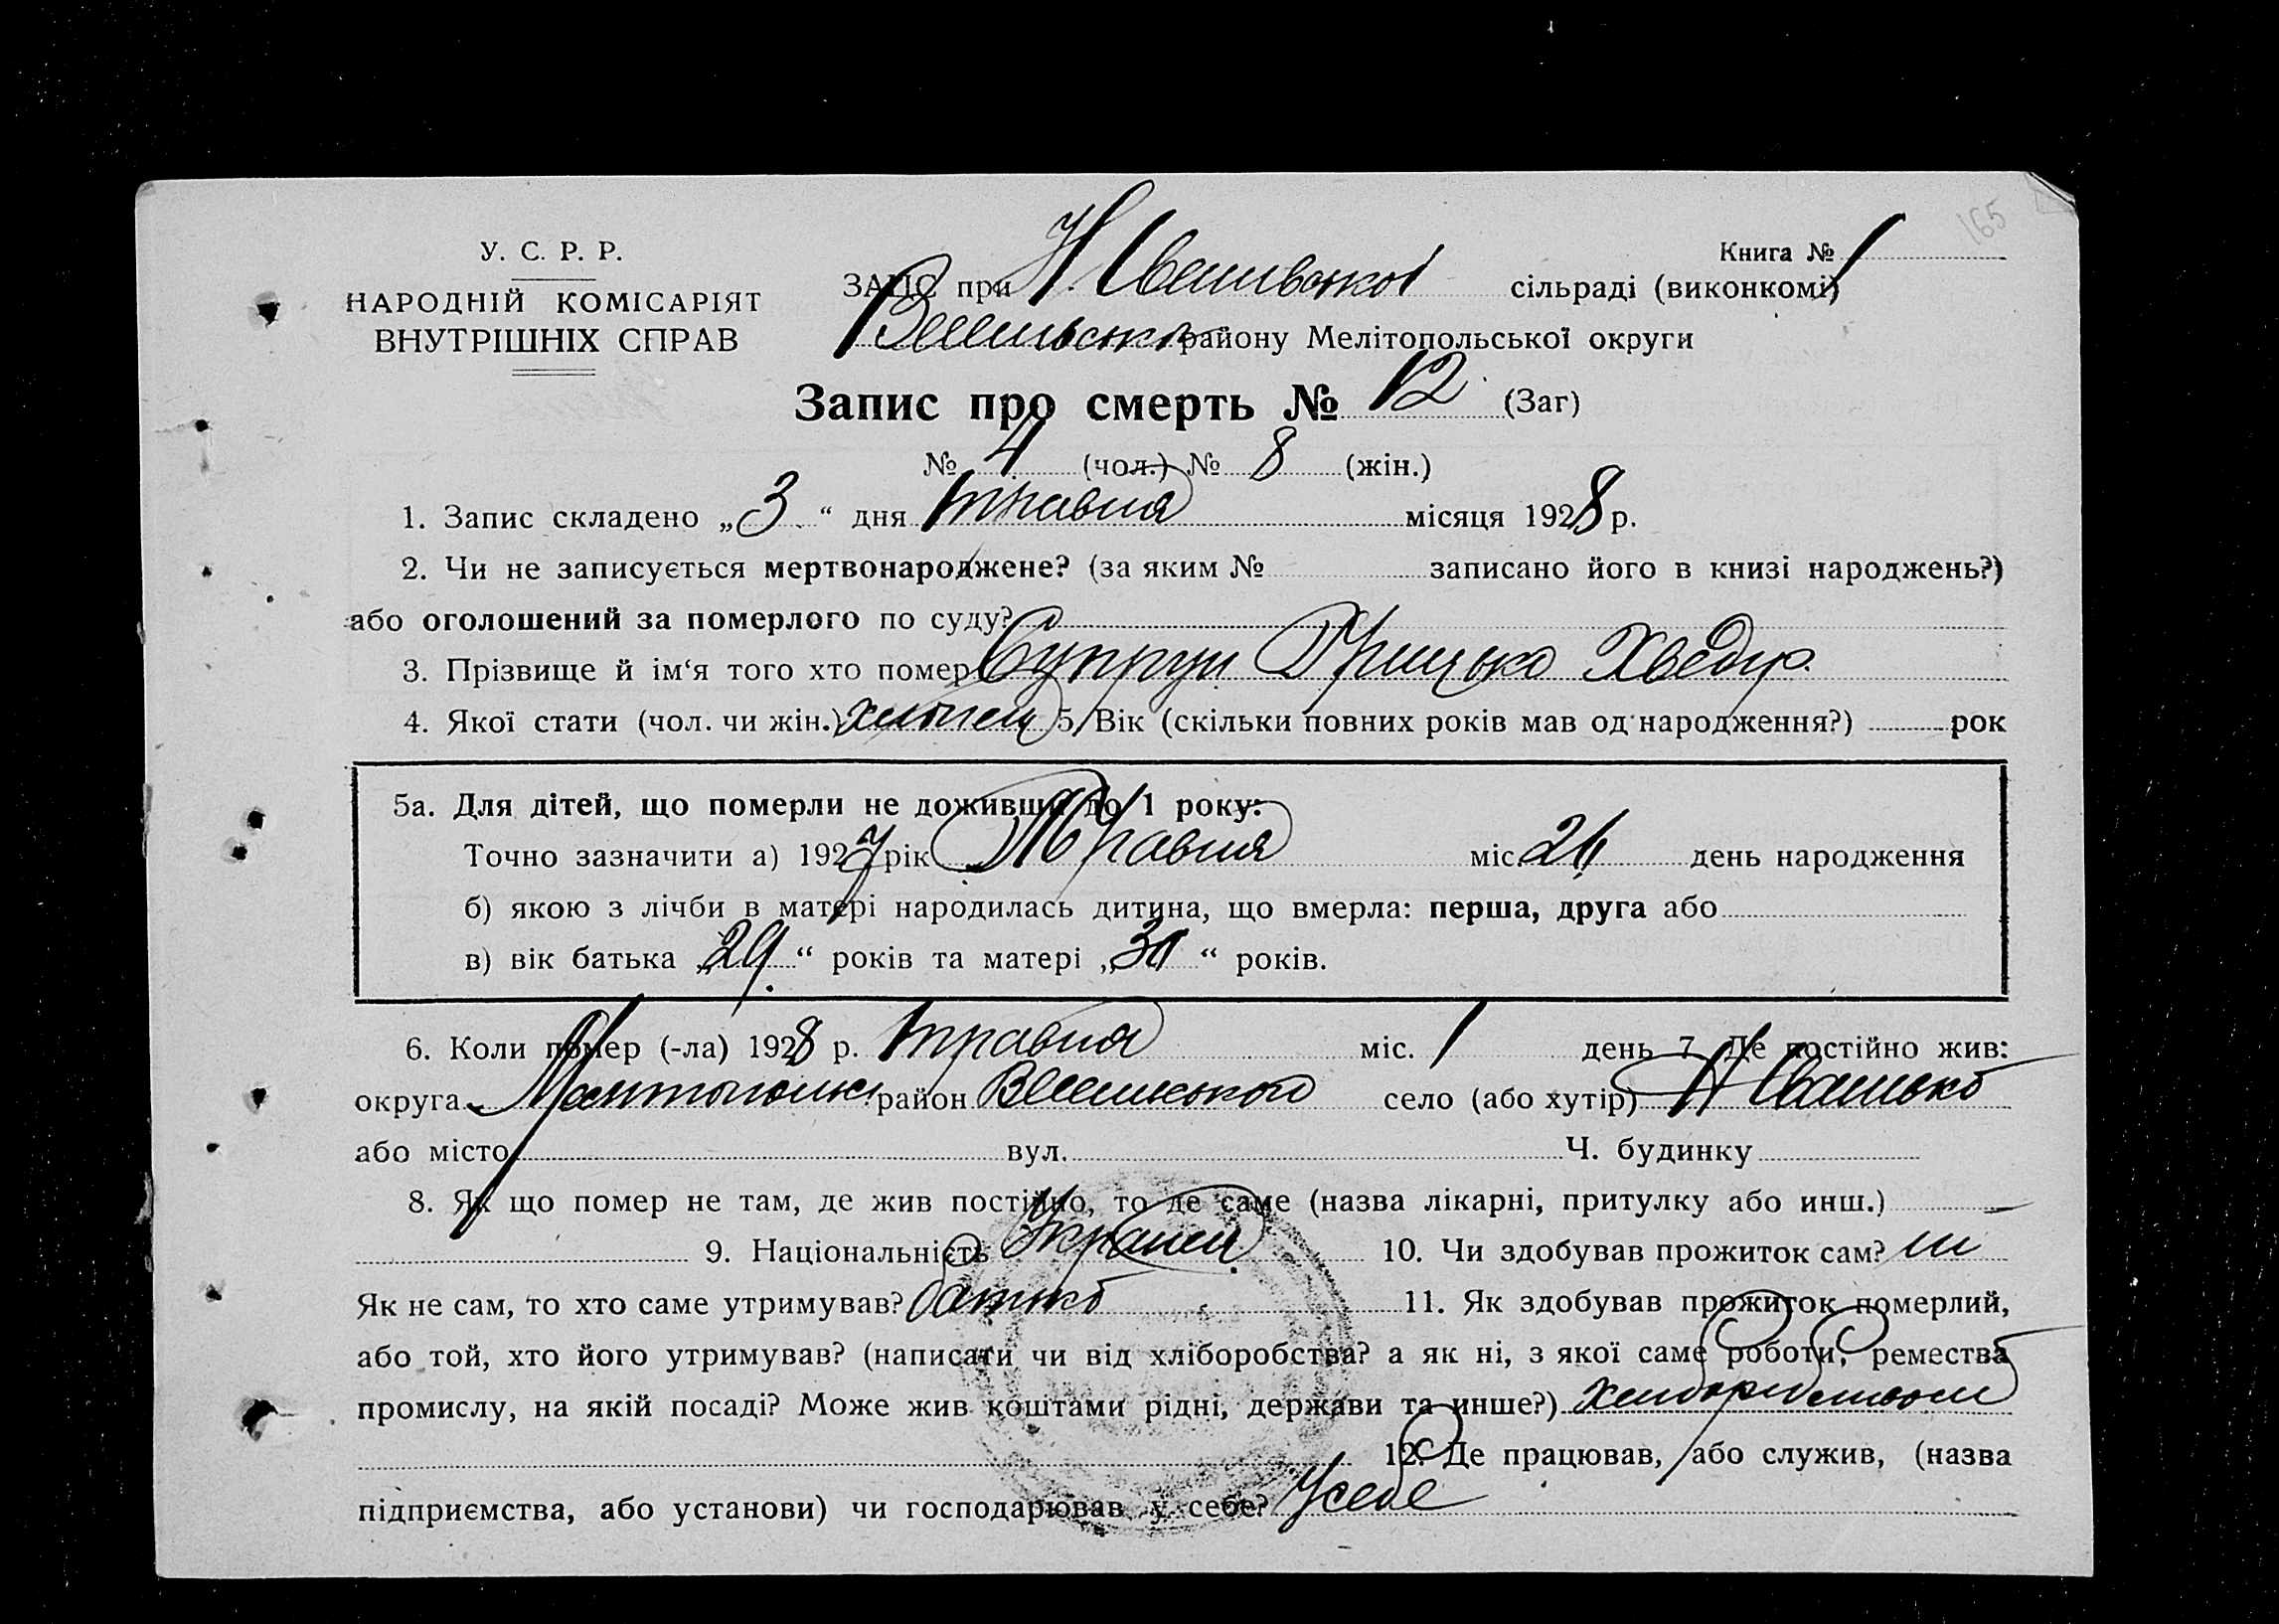 165
У. С. Р. Р.
НАРОДНІЙ КОМІСАРІЯТ
ВНУТРІШНІХ СПРАВ
Книга № 1
ЗАПИС при Н. сільраді (виконкомі)
району Мелітопольської округи
Запис про смерть № 12 (Заг)
№ 4 (чол.) № 8 (жін.)
1. Запис складено „3“ дня травня місяця 1928 р.
2. Чи не записується мертвонароджене? (за яким № записано його в книзі народжень?)
або оголошений за померлого по суду?
3. Прізвище й ім‘я того хто помер Супрун Грицько Хведір.
4. Якої стати (чол. чи жін.) хлопец 5. Вік (скільки повних років мав од народження?) рок
5а. Для дітей, що померли не доживши до 1 року:
Точно зазначити а) 1927 рік Травня міс. 26 день народження
б) якою з лічби в матері народилась дитина, що вмерла: перша, друга або
в) вік батька „29“ років та матері „30“ років.
6. Коли помер (-ла) 1928 р. травня міс. 1 день 7. Де постійно жив:
округа район село (або хутір) Н
або місто вул. Ч. будинку
8. Як що помер не там, де жив постійно, то де саме (назва лікарні, притулку або инш.) —
9. Національність Украінец 10. Чи здобував прожиток сам? ні
Як не сам, то хто саме утримував? батько 11. Як здобував прожиток померлий,
або той, хто його утримував? (написати чи від хліборобства? а як ні, з якої саме роботи, ремества
промислу, на якій посаді? Може жив коштами рідні, держави та инше?) хліборобством
12. Де працював, або служив, (назва
підприємства, або установи) чи господарював у себе? У себе